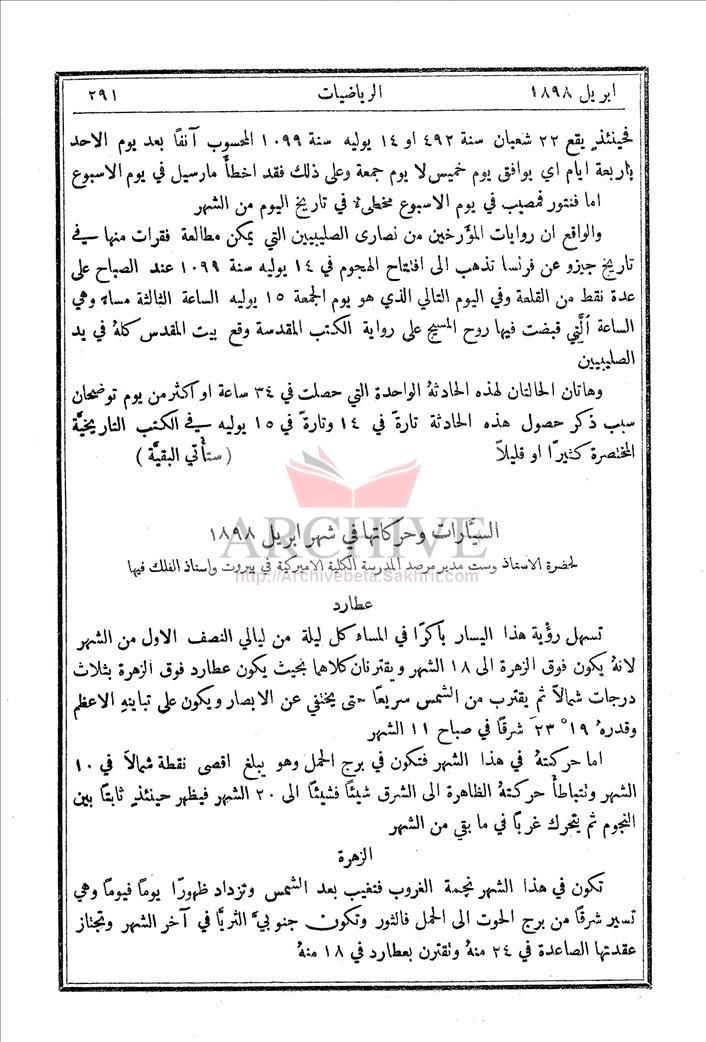 ابريل ١٨٩٨ الرياضيات ٢٩١
فحينئذٍ يقع ٢٢ شعبان سنة ٤٩٢ او ١٤ يوليه سنة ١٠٩٩ المحسوب آنفًا بعد يوم الاحد
باربعة ايام اي يوافق يوم خميس لا يوم جمعة وعلى ذلك فقد اخطأ مارسيل في يوم الاسبوع
اما فنتور فمصيب في يوم الاسبوع مخطئ في تاريخ اليوم من الشهر
والواقع ان روايات المؤرخين من نصارى الصليبيين التي يمكن مطالعة فقرات منها في
تاريخ جيزو عن فرنسا تذهب الى افتتاح الهجوم في ١٤ يوليه سنة ١٠٩٩ عند الصباح على
عدة نقط من القلعة وفي اليوم التالي الذي هو يوم الجمعة ١٥ يوليه الساعة الثالثة مساءً وهي
الساعة الَّتِي قبضت فيها روح المسيح على رواية الكتب المقدسة وقع بيت المقدس كلهُ في يد
الصليبيين
وهاتان الحالتان لهذه الحادثة الواحدة التي حصلت في ٣٤ ساعة او اكثر من يوم توضحان
سبب ذكر حصول هذه الحادثة تارةً في ١٤ وتارةً في ١٥ يوليه في الكتب التاريخيَّة
المختصرة كثيرًا او قليلاً ( ستأْتي البقيَّة )
السيَّارات وحركاتها في شهر ابريل ١٨٩٨
ARCHIVE
لحضرة الاستاذ وست مدير مرصد المدرسة الكلية الاميركية في بيروت واستاذ الفلك فيها
http://Archivebeta.Sakhrit.com
عطارد
تسهل رؤية هذا اليسار باكرًا في المساء كل ليلة من ليالي النصف الاول من الشهر
لانهُ يكون فوق الزهرة الى ١٨ الشهر ويقترنان كلاهما بحيث يكون عطارد فوق الزهرة بثلاث
درجات شمالاً ثم يقترب من الشمس سريعًا حتى يختفي عن الابصار ويكون على تباينهِ الاعظم
وقدرهُ ١٩° ٢٣َ شرقًا في صباح ١١ الشهر
اما حركتهُ في هذا الشهر فتكون في برج الحمل وهو يبلغ اقصى نقطة شمالاً في ١٠
الشهر وتتباطأُ حركتهُ الظاهرة الى الشرق شيئًا فشيئًا الى ٢٠ الشهر فيظهر حينئذٍ ثابتًا بين
النجوم ثم يتحرك غربًا في ما بقي من الشهر
الزهرة
تكون في هذا الشهر نجمة الغروب فتغيب بعد الشمس وتزداد ظهورًا يومًا فيومًا وهي
تسير شرقًا من برج الحوت الى الحمل فالثور وتكون جنوبيَّ الثريَّا في آخر الشهر وتجتاز
عقدتها الصاعدة في ٢٤ منهُ وتقترن بعطارد في ١٨ منهُ